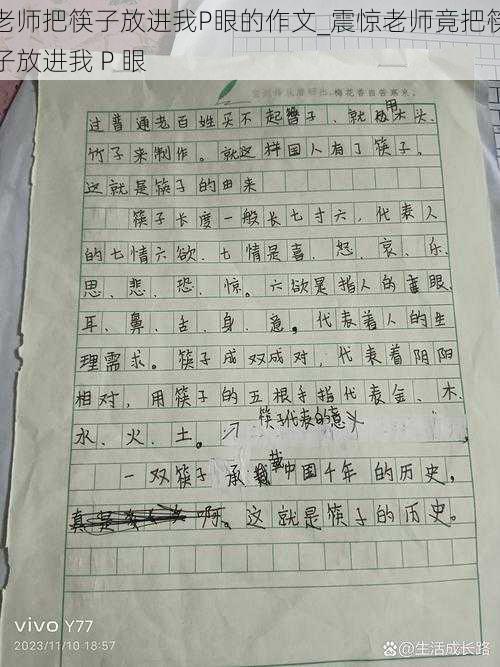 老师把筷子放进我P眼的作文_震惊老师竟把筷
子放进我 P 眼
宝剑锋从磨砺出，梅花香自苦寒来。
过普通老百姓买不起簪子、就极用木头.
竹子来制作。就这样国人有了筷子。
这就是筷子的由来
筷子长度一般长七寸六，代表人
的七情六欲.七情是喜.怒.哀.乐.
思.悲.恐.惊。六欲是指人的 眼.
耳、鼻.舌.身.意。代表着人的生
理需求。筷子成双成对，代表着阴阳
相对，用筷子的五根手指代表金、木.
水、火、土。
筷子代表的意义
一双筷子承载中国千年的历史，
啊。这就是筷子的历史。
vivo Y77
2023/11/10 18:57
百家号/生活成长路